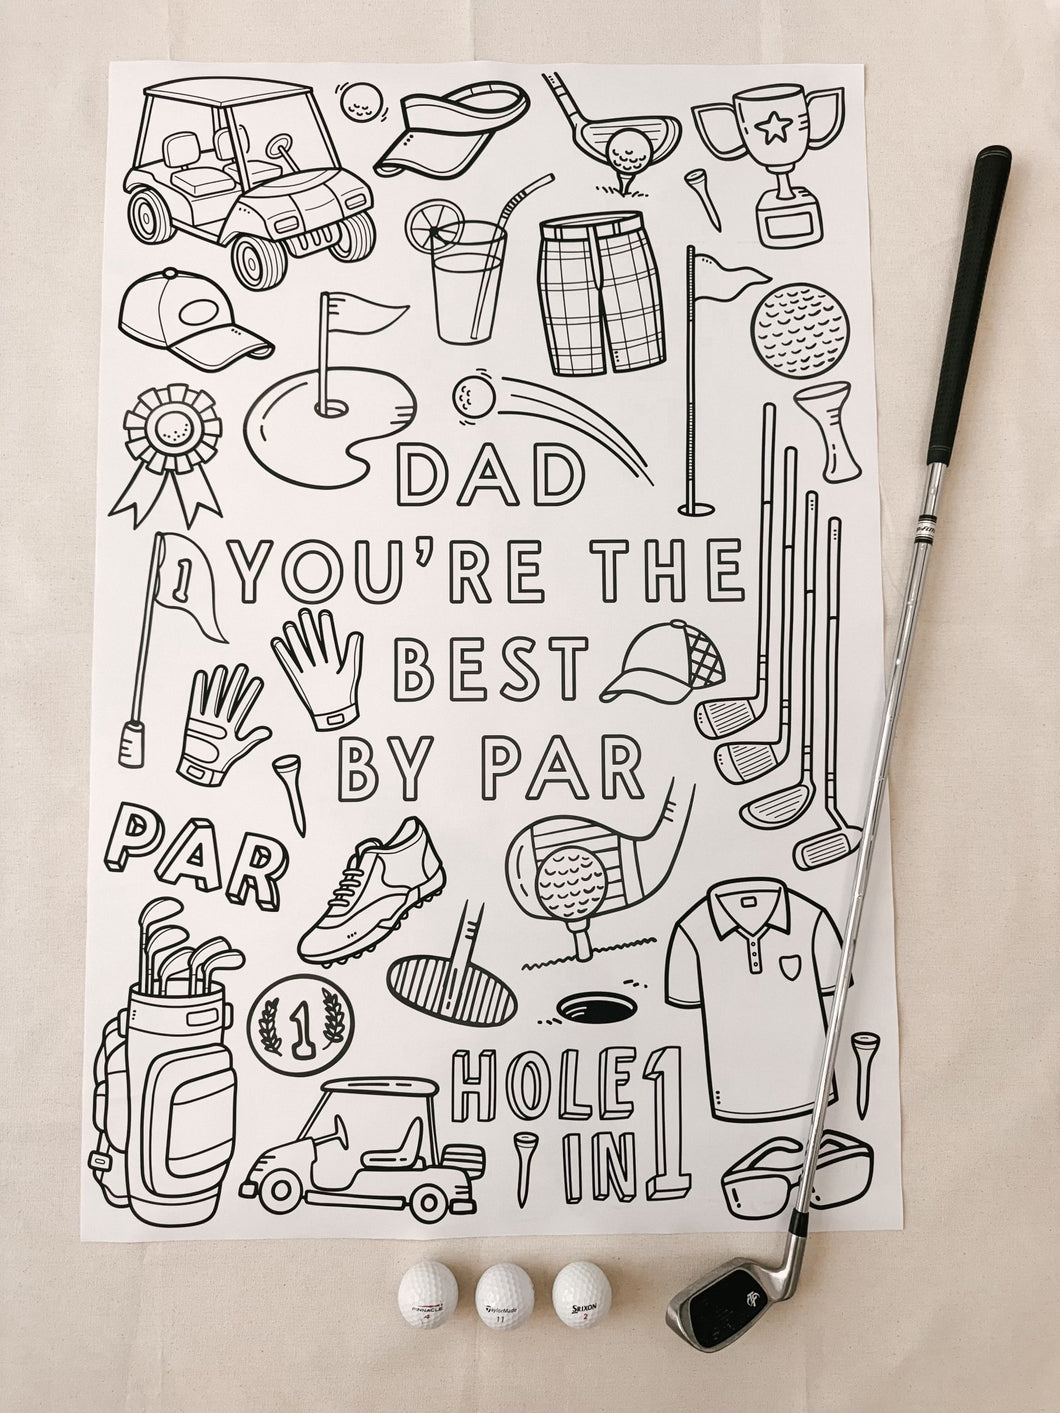 DAD
YOU'RE THE
1
BEST
BY PAR
PAR
1
HOLE
IN 1
PINNACLE
4
TaylorMade
11
SRIXON
2